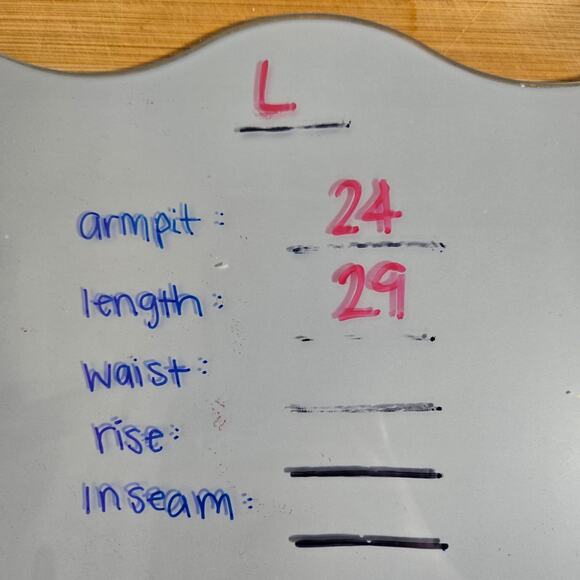 L
armpit: 24
length: 29
waist:
rise:
inseam: